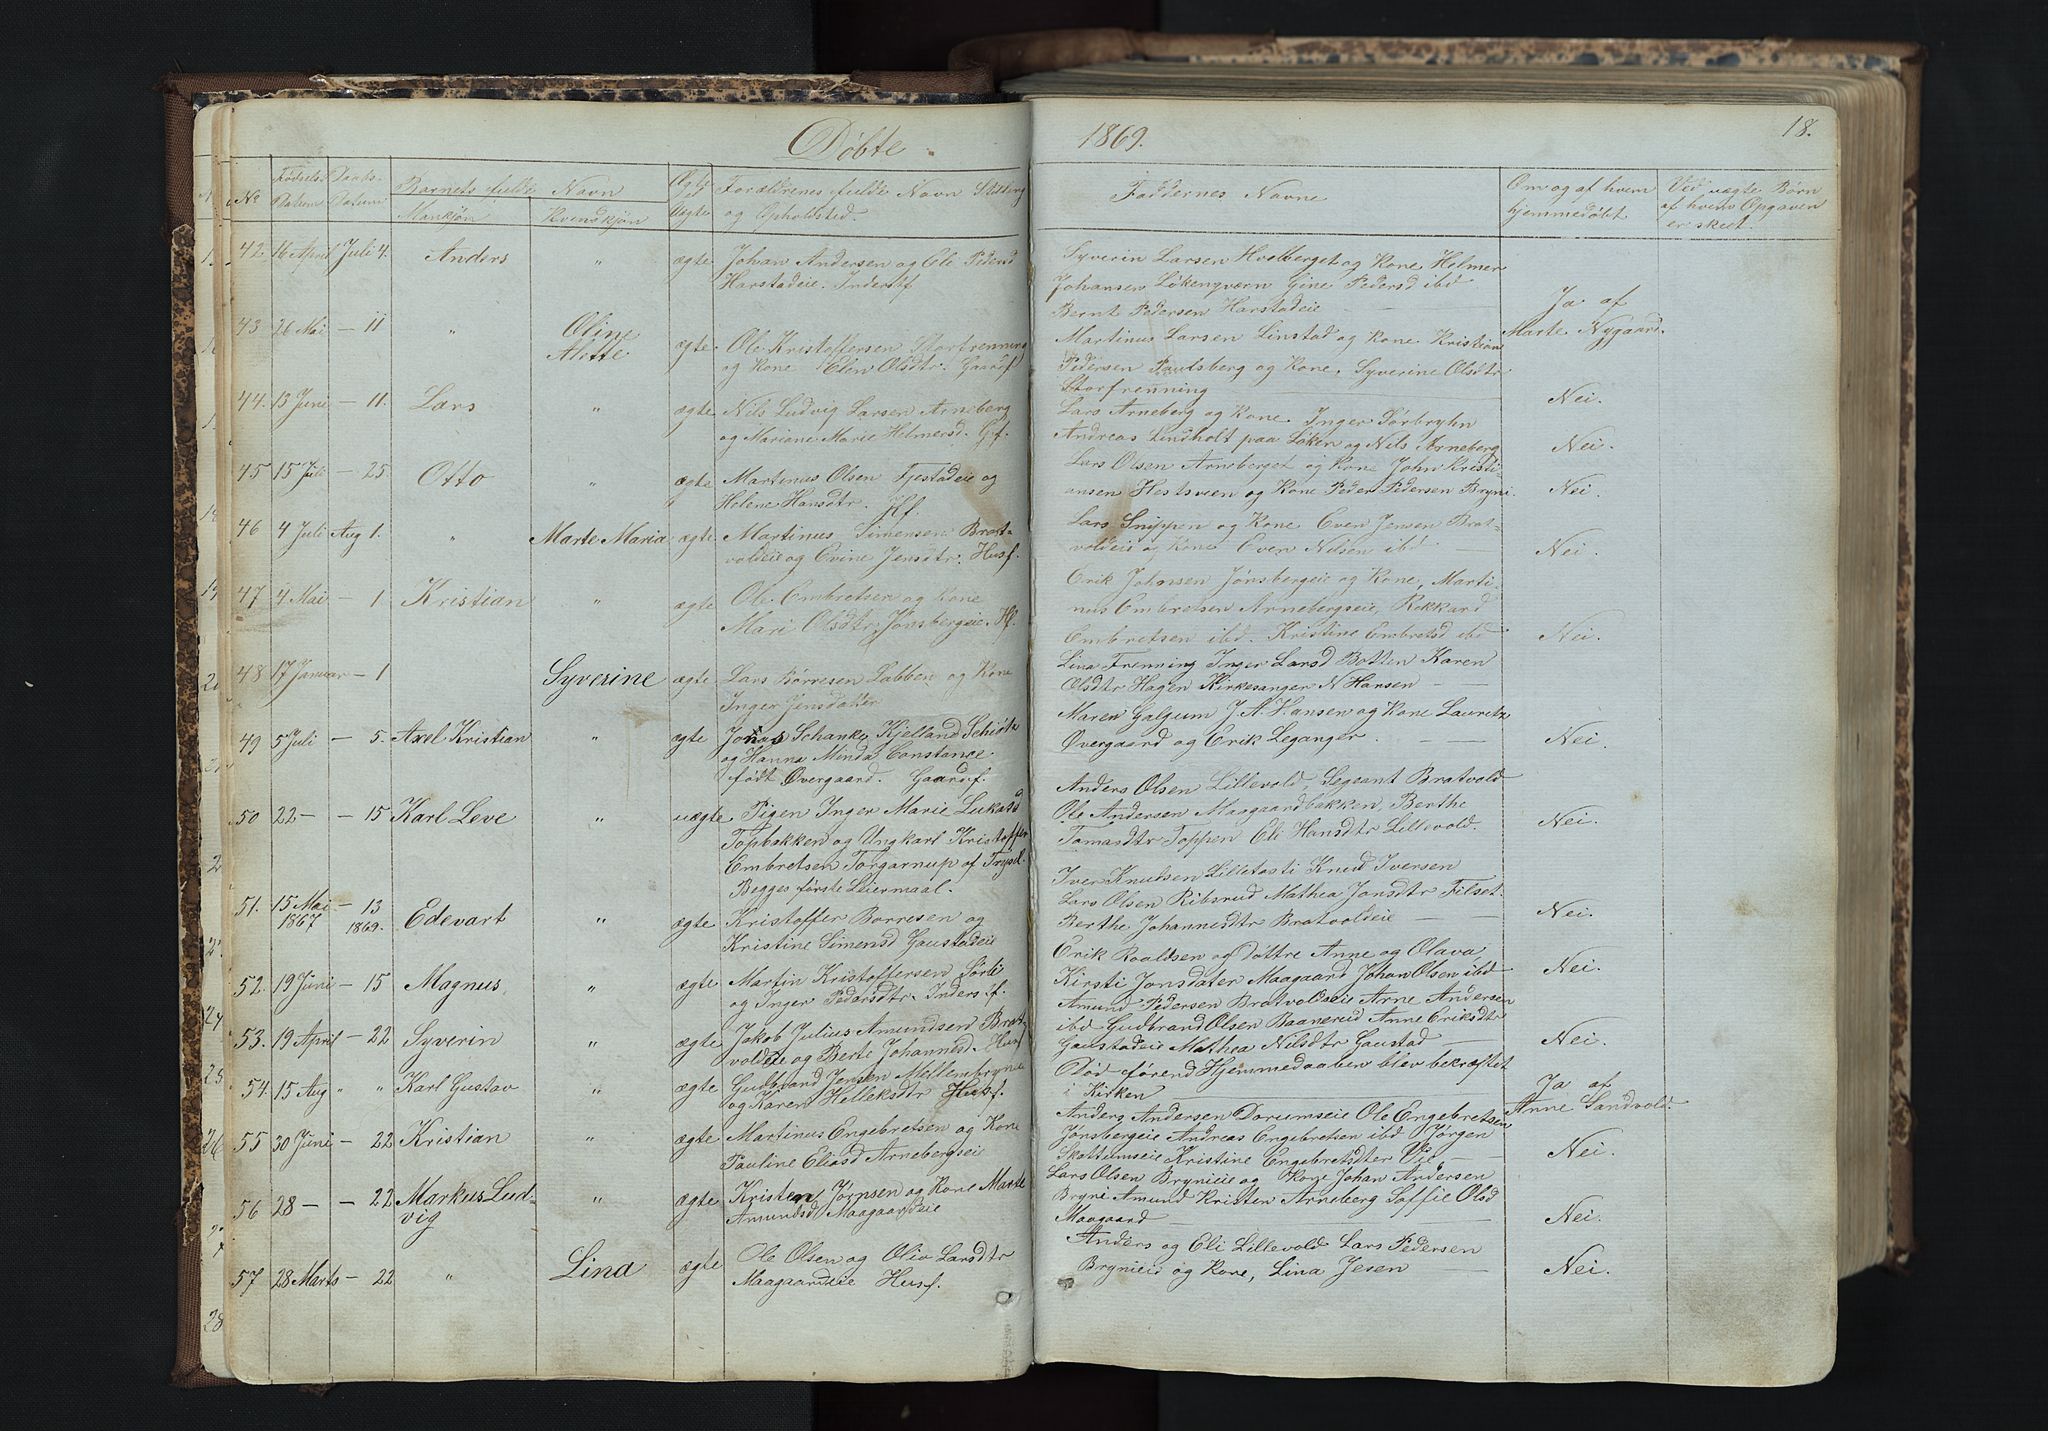 Døbte 1869. 18.
No Fødsels Datum Daabs Datum Barnets fulde Navn Mankjøn Kvindekjøn Ægte Uægte Forældrenes fulde Navn Stilling og Opholdsted.
Faddernes Navne Om og af hvem hjemmedøbt Ved uægte Børn af hvem Opgaven er skeet.
42 16 April Juli 4. Anders " ægte Johan Andersen og Eli Pedersd
Harstadeie. Inderst
Syverin Larsen Hvelberget og Kone Helmer
Johansen Løkengværn Gine Pedersd ibd
Bernt Pedersen Harstadeie
Ja af
Marte Nygaard.
43 26 Mai – 11 " Oline
Alette ægte Ole Kristoffersen Storfrenning
og Kone Elen Olsdtr. Gaardf
Martinus Larsen Linstad og Kone Kristian
Pedersen Paulsberg og Kone, Syverine Olsdtr
Storfrenning
Nei.
44. 13 Juni – 11. Lars " ægte Nils Ludvig Larsen Arneberg
og Mariane Marie Helmersd. Gf.
Lars Arneberg og Kone. Inger Dørbryhn
Andreas Lindholt paa Løken og Nils Arneberg
Nei.
45 15 Juli – 25. Otto " ægte Martinus Olsen Fjestadeie og
Helene Hansdtr. Hf.
Lars Olsen Arneberget og Kone John Kristi-
ansen Hestsveen og Kone Peder Pedersen Bryni.
Nei.
46 4 Juli Aug 1. " Marte Maria ægte Martinus Simensen Brat-
voldeie og Evine Jensdtr. Husf.
Lars Snippen og Kone Even Jensen Brat-
voldeie og Kone Even Nilsen ibd
Nei.
47 4 Mai – 1 Kristian " ægte Ole Embretsen og Kone
Mari Olsdtr. Jønsbergeie. Hf.
Erik Johnsen Jønsbergeie og Kone, Marti-
nus Embretsen Arnebergseie, Rikkard
Embretsen ibd. Kristine Embretsd ibd
Nei.
48 17 Januar – 1 Syverine ægte Lars Børresen Labben og Kone
Inger Jensdatter
Lina Frenning Inger Larsd Botten Karen
Olsdtr Hagen Kirkesanger N Hansen
49 5 Juli – 5. Axel Kristian " ægte Jonas Schanke Kjelland Schiøtz
og Hanna Minda Constance
født Øvergaard. Gaardf.
Maren Galgum J. A. Hansen og Kone Lauritz
Øvergaard og Erik Leganger.
Nei.
50 22 – – 15 Karl Leve " uægte Pigen Inger Marie Lukasd
Topbakken og Ungkarl Kristoffer
Embretsen Torgarnup af Trysil.
Begges første Leiermaal.
Anders Olsen Lillevold, Segeant Bratvold
Ole Andersen Maagaardbakken, Berthe
Tomasdtr Toppen Eli Hansdtr Lillevold.
Nei.
51. 15 Mai – 13
1867 1869. Edevart " ægte Kristoffer Børresen og
Kristine Simensd Gaustadeie
Iver Knudsen Lilletosti Knud Iversen
Lars Olsen Ribsrud Mathea Jonsdtr Filset
Berthe Johannesdtr Bratvoldeie
Nei.
52. 19 Juni – 15 Magnus. " ægte Martin Kristoffersen Sørli
og Inger Pedersdtr. Inders f.
Erik Roaldsen og Døttre Anne og Olava,
Kirsti Jonsdater Maagaard Johan Olsen ibd
Nei.
53. 19 April – 22 Syverin " ægte Jakob Julius Amundsen Brat-
voldeie og Berte Johannesd. Husf
Amund Pedersen Bratvoldseie Arne Andersen
ibd Gudbrand Olsen Baanerud Anne Eriksdtr
Gaustadeie Mathea Nilsdtr Gaustad
Nei.
54. 15 Aug " " Karl Gustav " ægte Gudbrand Jensen Mellembrynie
og Karen Helleksdtr Husf.
Død førend Hjemmedaaben blev bekræftet
i Kirken
Ja af
Anne Sandvold.
55 30 Juni – 22 Kristian " ægte Martinus Engebretsen og Kone
Pauline Eliasd Arnebergseie
Anders Andersen Dorumseie Ole Engebretsen
Jønsbergeie Andreas Engebretsen ibd Jørgen
Skattumseie Kristine Engebretsdter Vie
Nei.
56 28 – – 22 Markus Lud-
vig " ægte Kristen Jørnsen og Kone Marte
Amundsd Maagaardeie
Lars Olsen Brynieie og Kone Johan Andersen
Bryni Amund Kristen Arneberg Soffie Olsd
Maagaard
Nei.
57 28 Marts – 22 " Lina ægte Ole Olsen og Oliv Larsdtr
Maagaardeie Husf.
Anders og Eli Lillevold Lars Pedersen
Brynieie og Kone, Lina Jesen
Nei.